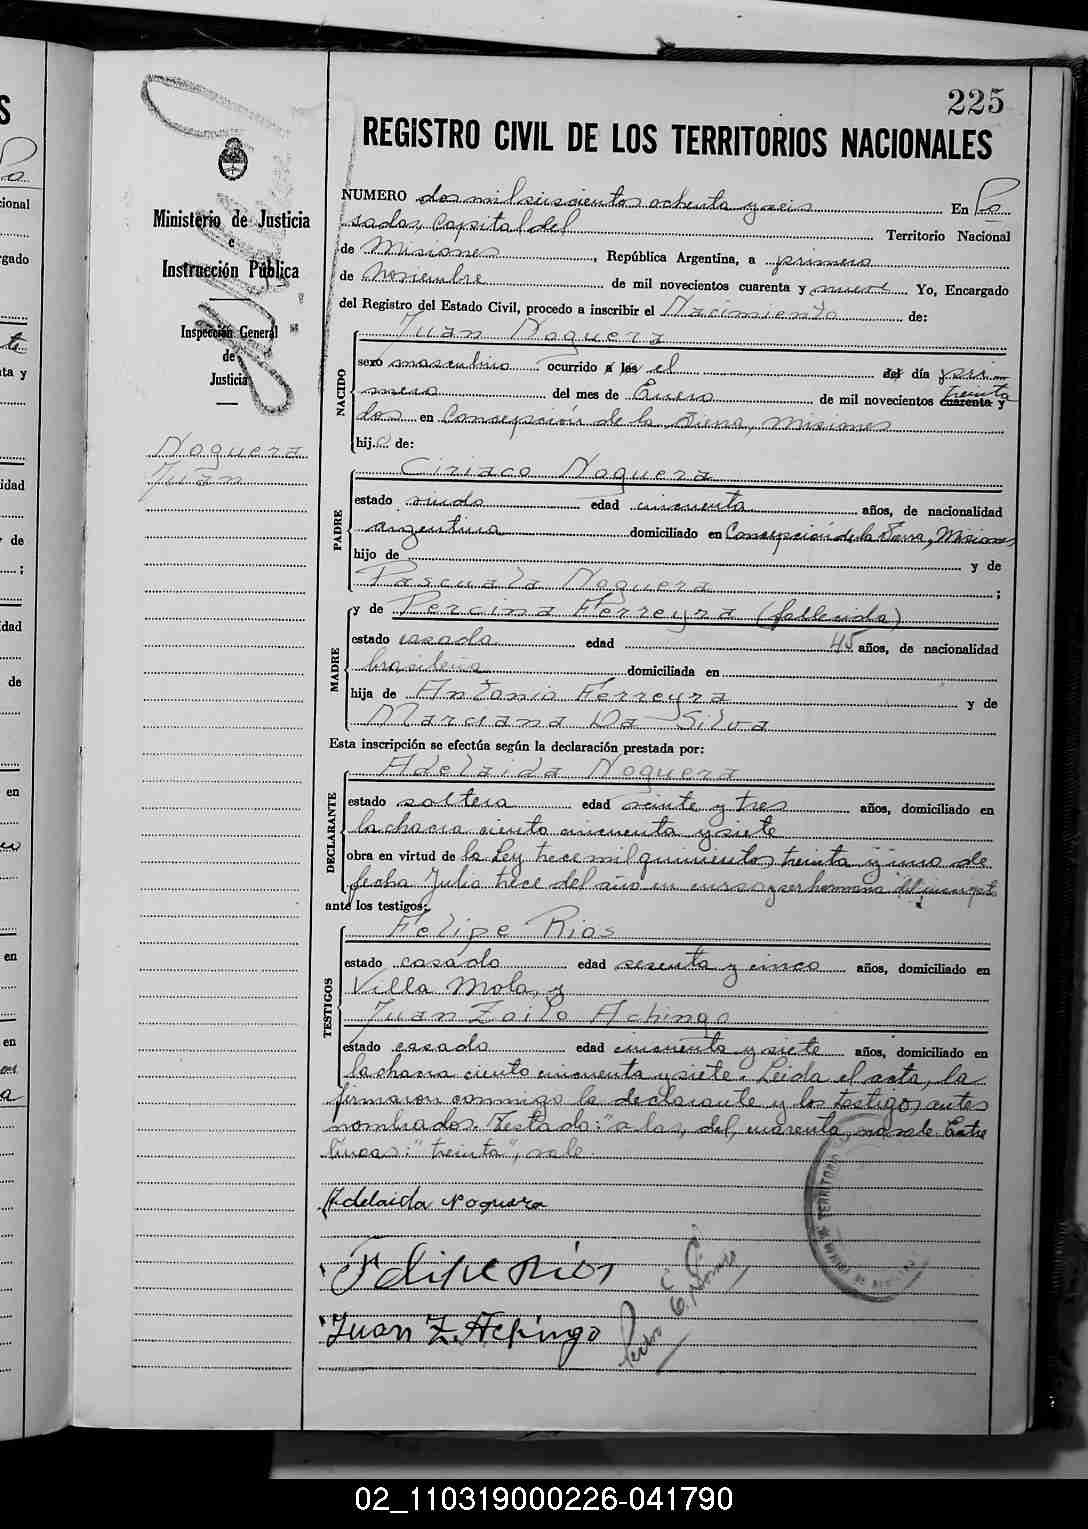 225
REGISTRO CIVIL DE LOS TERRITORIOS NACIONALES
Ministerio de Justicia
e
Instrucción Pública
Inspección General
de
Justicia
Noguera
Juan
NUMERO dos mil seiscientos ochenta y seis En Po
sadas, Capital del Territorio Nacional
de Misiones, República Argentina, a primero
de Noviembre de mil novecientos cuarenta y nueve Yo, Encargado
del Registro del Estado Civil, procedo a inscribir el Nacimiento de:
NACIDO
Juan Noguera
sexo masculino ocurrido a las el del día pri
mero del mes de Enero de mil novecientos cuarenta y treinta
dos en Concepción de la Sierra, Misiones
hijo de:
PADRE
Ciriaco Noguera
estado viudo edad cincuenta años, de nacionalidad
argentina domiciliado en Concepción de la Sierra, Misiones
hijo de y de
Pascuala Noguera;
MADRE
y de Percina Ferreyra (fallecida)
estado casada edad 45 años, de nacionalidad
brasileña domiciliada en
hija de Antonio Ferreyra y de
Marciana Da Silva
Esta inscripción se efectúa según la declaración prestada por:
DECLARANTE
Adelaida Noguera
estado soltera edad veinte y tres años, domiciliado en
la chacra ciento cincuenta y siete
obra en virtud de la Ley trece mil quinientos treinta y uno de
fecha Julio trece del año en curso y ser hermana del inscripto
ante los testigos:
TESTIGOS
Felipe Rios
estado casado edad sesenta y cinco años, domiciliado en
Villa Mola, y
Juan Zoilo Achingo
estado casado edad cincuenta y siete años, domiciliado en
la chacra ciento cincuenta y siete. Leida el acta, la
firmaron conmigo la declarante y los testigos antes
nombrados. Testado: "a las, del, cuarenta, no vale. Entre
lineas: "treinta", vale.
Adelaida Noguera
Felipe Rios
Juan Z. Achingo
02_110319000226-041790